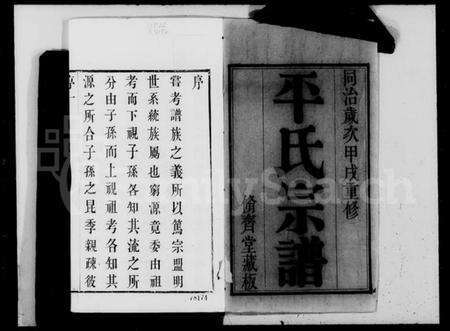 同治歲次甲戌重修
平氏宗譜
脩齊堂藏板
序
嘗考譜族之義所以篤宗盟明
世系統族屬也窮源竟委由祖
考而下視子孫各知其流之所
分由子孫而上視祖考各知其
源之所合子孫之昆季親疎彼
序 一
MySearch